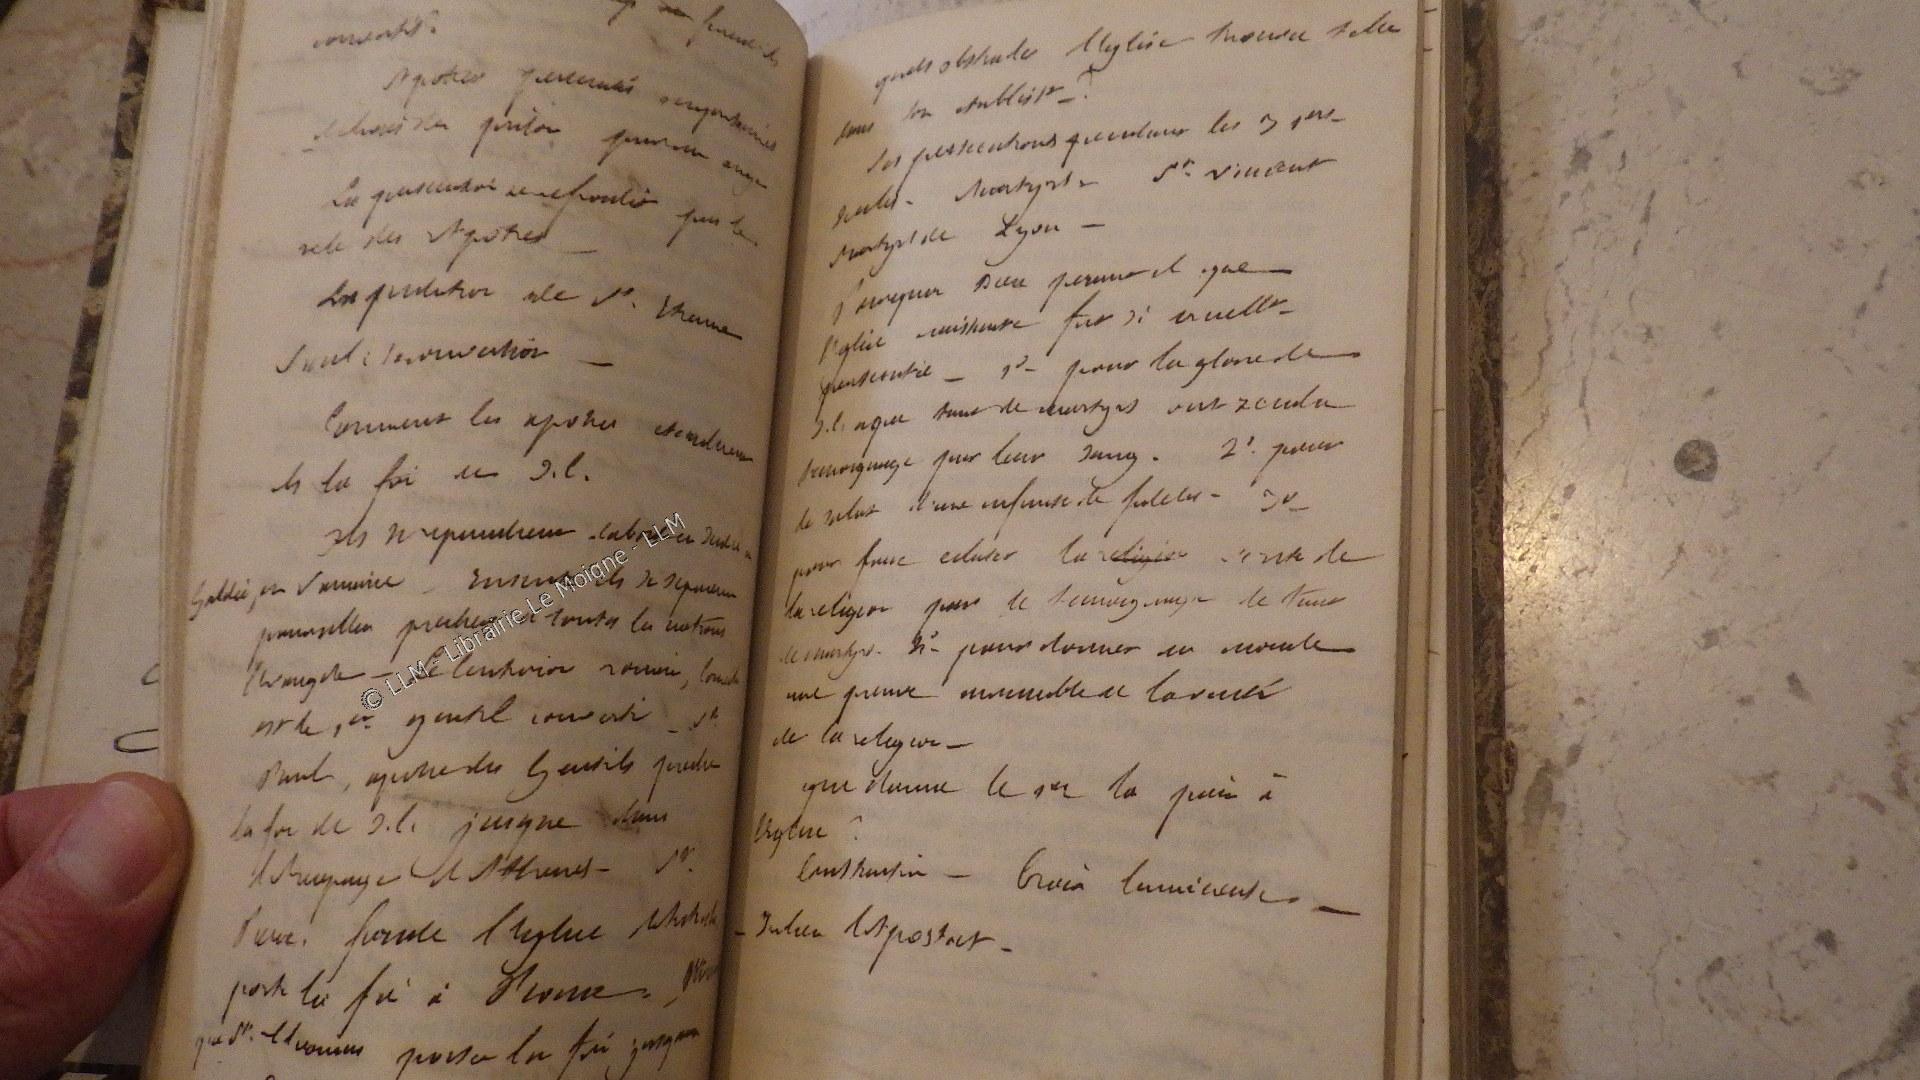 convertis.
Apotres persecutés emprisonnés
delivrés de prison par un ange
La persecution ne refroidit pas le
zele des Apotres —
La predication de St. Etienne
Saul : sa conversion —
Comment les apotres etendirent
ils la foi en J.C.
Ils se repandirent d'abord en Judée en
Galilée, en Samarie — Ensuite ils se separerent
pour aller precher à toutes les nations
l'Evangile — Le Centurion romain, Corneille
est le 1er gentil converti — St.
Paul, apotre des Gentils preche
la foi de J.C. jusque dans
l'Areopage d'Athenes — St.
Pierre fonde l'Eglise
porte la foi à Rome —
que St. Thomas porte la foi jusque
quels obstacles l'Eglise trouva t elle
dans son etablisst — ?
Les persecutions pendant les 3 1ers
siecles — Martyrs — St. Vincent
Martyrs de Lyon —
Pourquoi Dieu permit il que
l'Eglise naissante fut si cruellt
persecutée — 1° pour la gloire de
J.C. à qui tant de martyrs ont rendu
temoignage par leur sang. 2° pour
le salut d'une infinité de fideles — 3°
pour faire eclater la religion verité de
la religion par le temoignage de tant
de martyrs. 4° pour donner au monde
une preuve de la verité
de la religion —
qui donna le 1er la paix à
l'Eglise ?
Constantin — Croix lumineuse —
Julien l'Apostat —
© LLM - Librairie Le Moigne - LLM